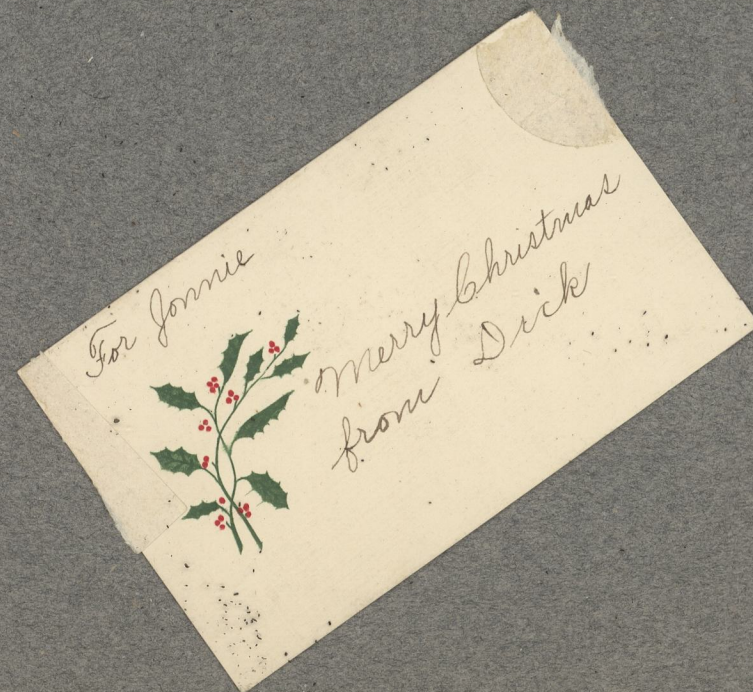 For Jonnie
Merry Christmas
from Dick